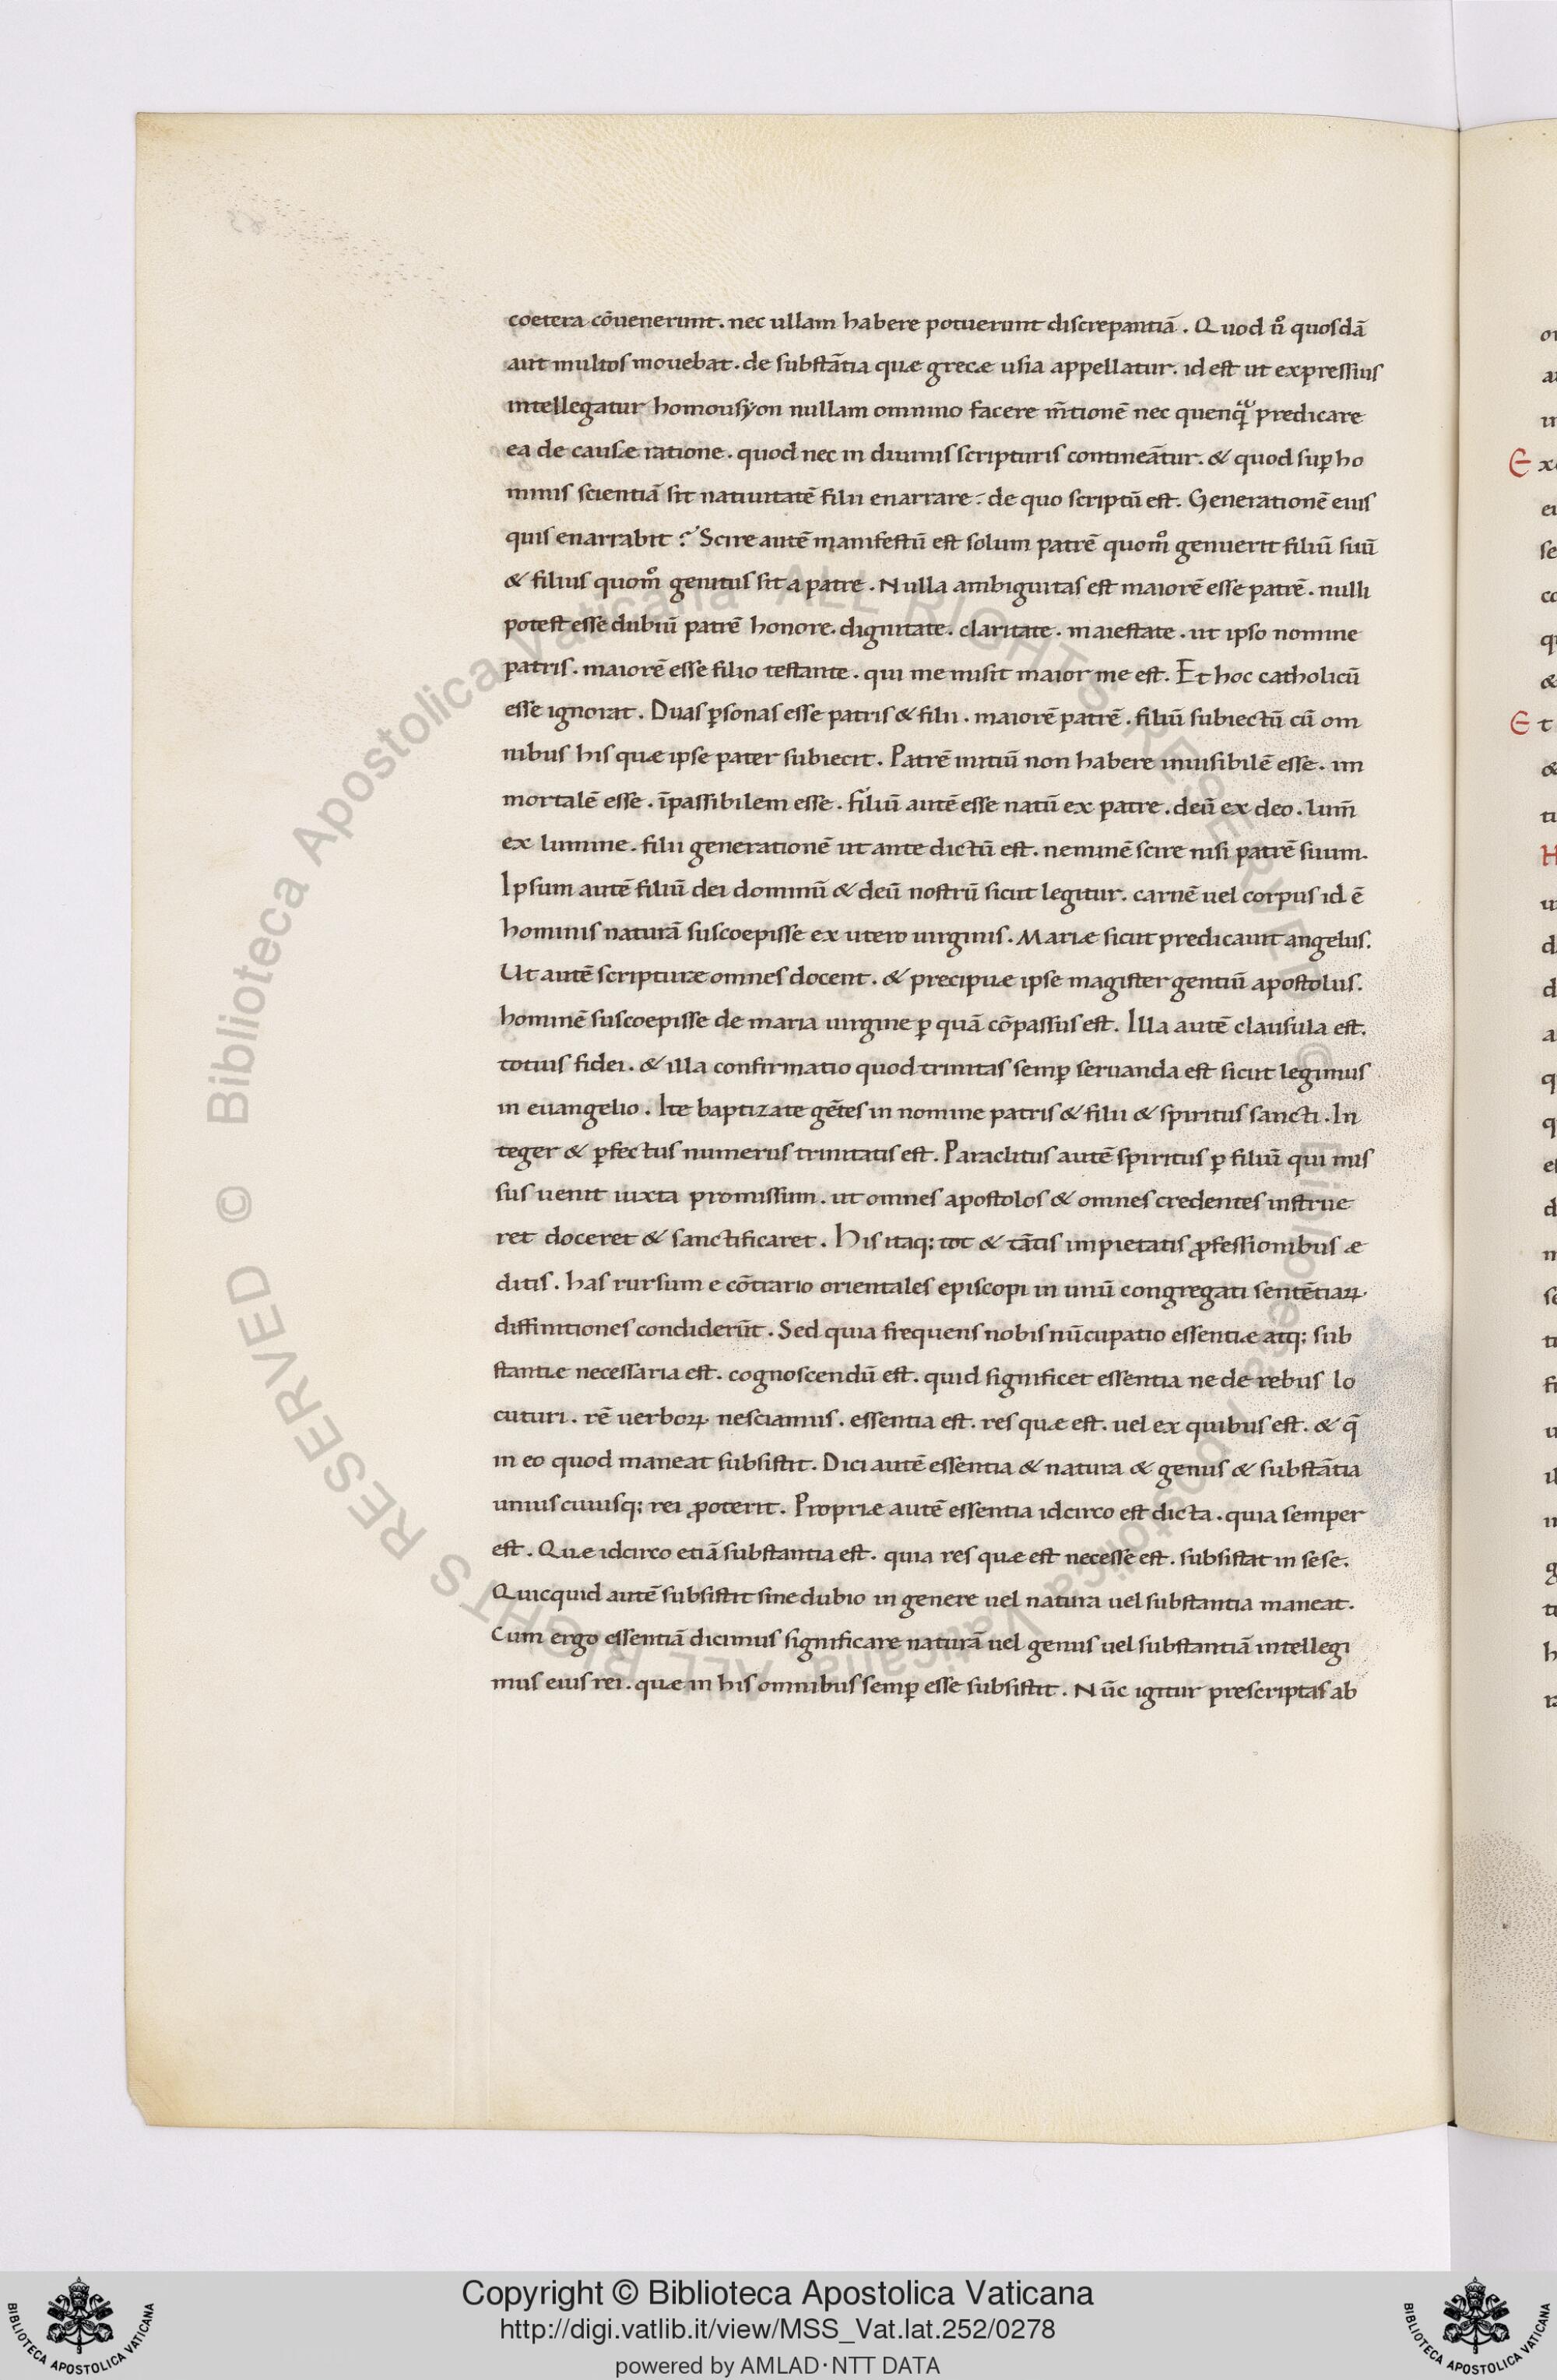 coetera cōuenerunt. nec ullam habere potuerunt discrepantiā. Quod ŭo quosdā
aut multos mouebat. de substātia quæ grecæ usia appellatur. id est ut expressius
intellegatur homousyon nullam omnino facere m̄tionē nec quenq̃ predicare
ea de causæ ratione. quod nec in diuinis scripturis contineātur. & quod sup̱ ho
minis scientiā sit natiuitatē filii enarrare: de quo scriptū est. Generationē eius
quis enarrabit? Scire autē manifestū est solum patrē quom̊ genuerit filiū suū
& filius quom̊ genitus sit a patre. Nulla ambiguitas est maiorē esse patrē. nulli
potest esse dubiū patrē honore. dignitate. claritate. maiestate. ut ipso nomine
patris. maiorē esse filio testante. qui me misit maior me est. Et hoc catholicū
esse ignorat. Duas p̱sonas esse patris & filii. maiorē patrē. filiū subiectū cū om
nibus his quæ ipse pater subiecit. Patrē initiū non habere inuisibilē esse. im
mortalē esse. īpassibilem esse. filiū autē esse natū ex patre. deū ex deo. lum̄
ex lumine. filii generationē ut ante dictū est. neminē scire nisi patrē suum.
Ipsum autē filiū dei dominū & deū nostrū sicut legitur. carnē uel corpus id ē
hominis naturā suscoepisse ex utero uirginis. Mariæ sicut predicauit angelus.
Ut autē scripturæ omnes docent. & precipuæ ipse magister gentiū apostolus.
hominē suscoepisse de maria uirgine p̱ quā cōpassus est. Illa autē clausula est.
totius fidei. & illa confirmatio quod trinitas semp̱ seruanda est sicut legimus
in euangelio. Ite baptizate gētes in nomine patris & filii & spiritus sancti. In
teger & p̱fectus numerus trinitatis est. Paraclitus autē spiritus p̱ filiū qui mis
sus uenit iuxta promissum. ut omnes apostolos & omnes credentes instrue
ret doceret & sanctificaret. His itaq; tot & tātis impietatis ꝓfessionibus æ
ditis. has rursum e cōtrario orientales episcopi in unū congregati sentētiaꝝ
diffinitiones condiderūt. Sed quia frequens nobis nūcupatio essentiæ atq; sub
stantiæ necessaria est. cognoscendū est. quid significet essentia ne de rebus lo
cuturi. rē uerboꝝ nesciamus. essentia est. res quæ est. uel ex quibus est. & q̄
in eo quod maneat subsistit. Dici autē essentia & natura & genus & substātia
uniuscuiusq; rei ꝓoterit. Propriæ autē essentia idcirco est dicta. quia semper
est. Quæ idcirco etiā substantia est. quia res quæ est necesse est. subsistat in sese.
Quicquid autē subsistit sine dubio in genere uel natura uel substantia maneat.
Cum ergo essentiā dicimus significare naturā uel genus uel substantiā intellegi
mus eius rei. quæ in his omnibus semp̱ esse subsistit. Nūc igitur prescriptas ab
Є x
Є t
H
© Biblioteca Apostolica Vaticana ALL RIGHTS RESERVED
© Biblioteca Apostolica Vaticana ALL RIGHTS RESERVED
Copyright © Biblioteca Apostolica Vaticana
http://digi.vatlib.it/view/MSS_Vat.lat.252/0278
powered by AMLAD·NTT DATA
BIBLIOTECA APOSTOLICA VATICANA
BIBLIOTECA APOSTOLICA VATICANA